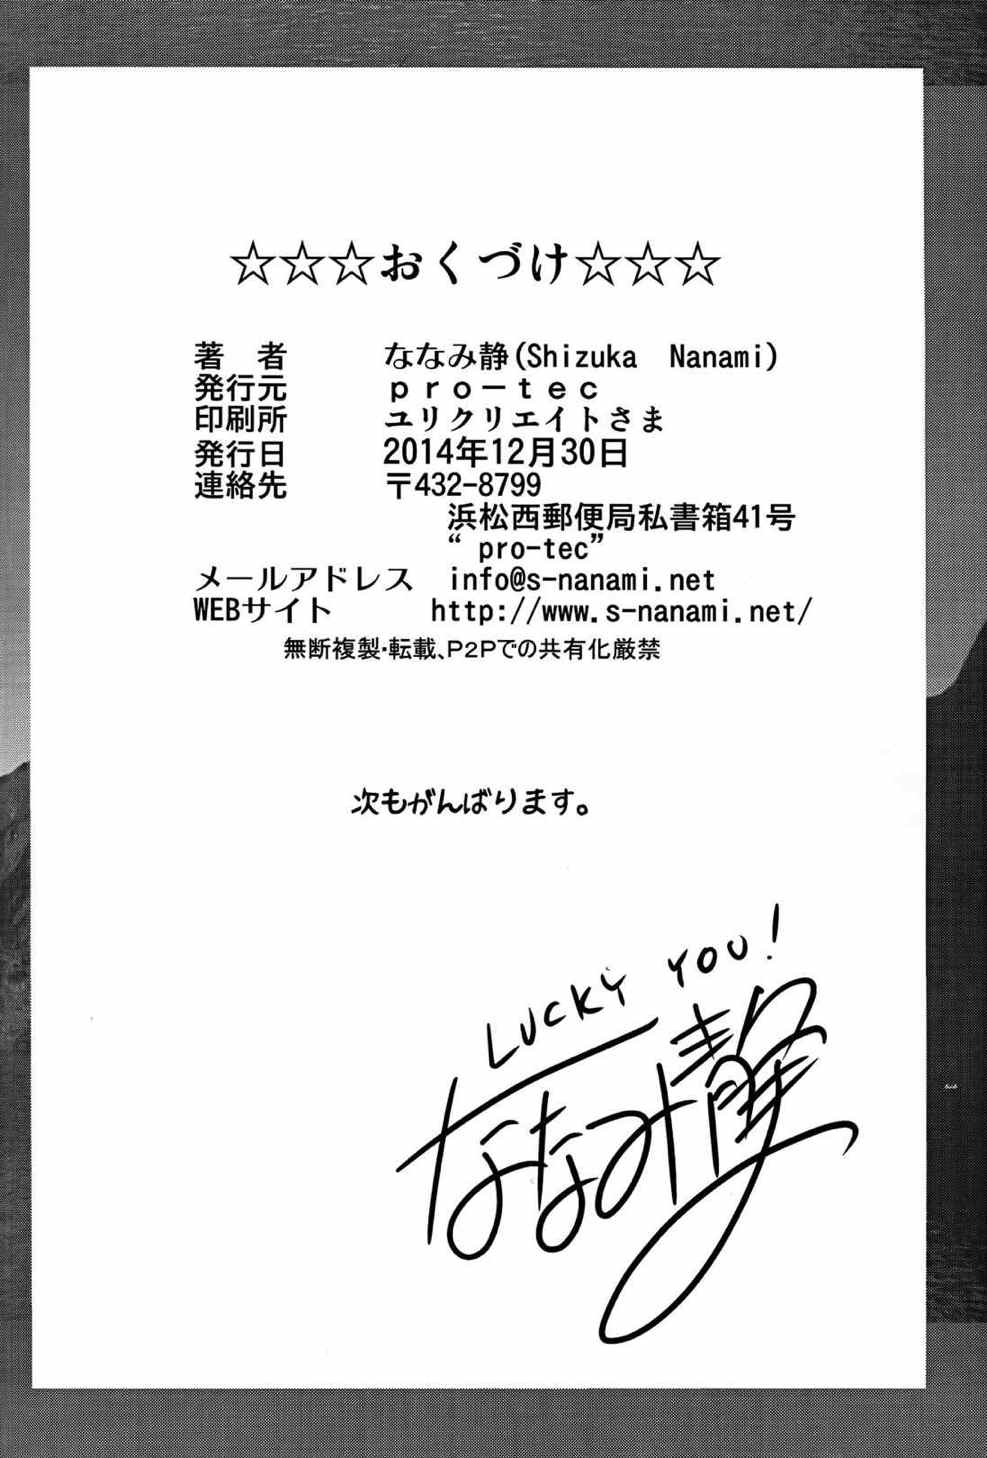 ☆☆☆おくづけ☆☆☆
著　者　ななみ静(Shizuka　Nanami)
発行元　ｐｒｏ－ｔｅｃ
印刷所　ユリクリエイトさま
発行日　2014年12月30日
連絡先　〒432-8799
浜松西郵便局私書箱41号
“ pro-tec”
メールアドレス　info@s-nanami.net
WEBサイト　http://www.s-nanami.net/
無断複製・転載、P2Pでの共有化厳禁
次もがんばります。
LUCKY YOU!
ななみ静